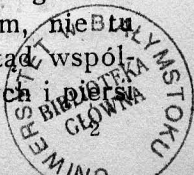 m, nie tu
tąd wspól-
ch i piers
2
UNIWERSYTET W BIAŁYMSTOKU
BIBLIOTEKA
GŁÓWNA